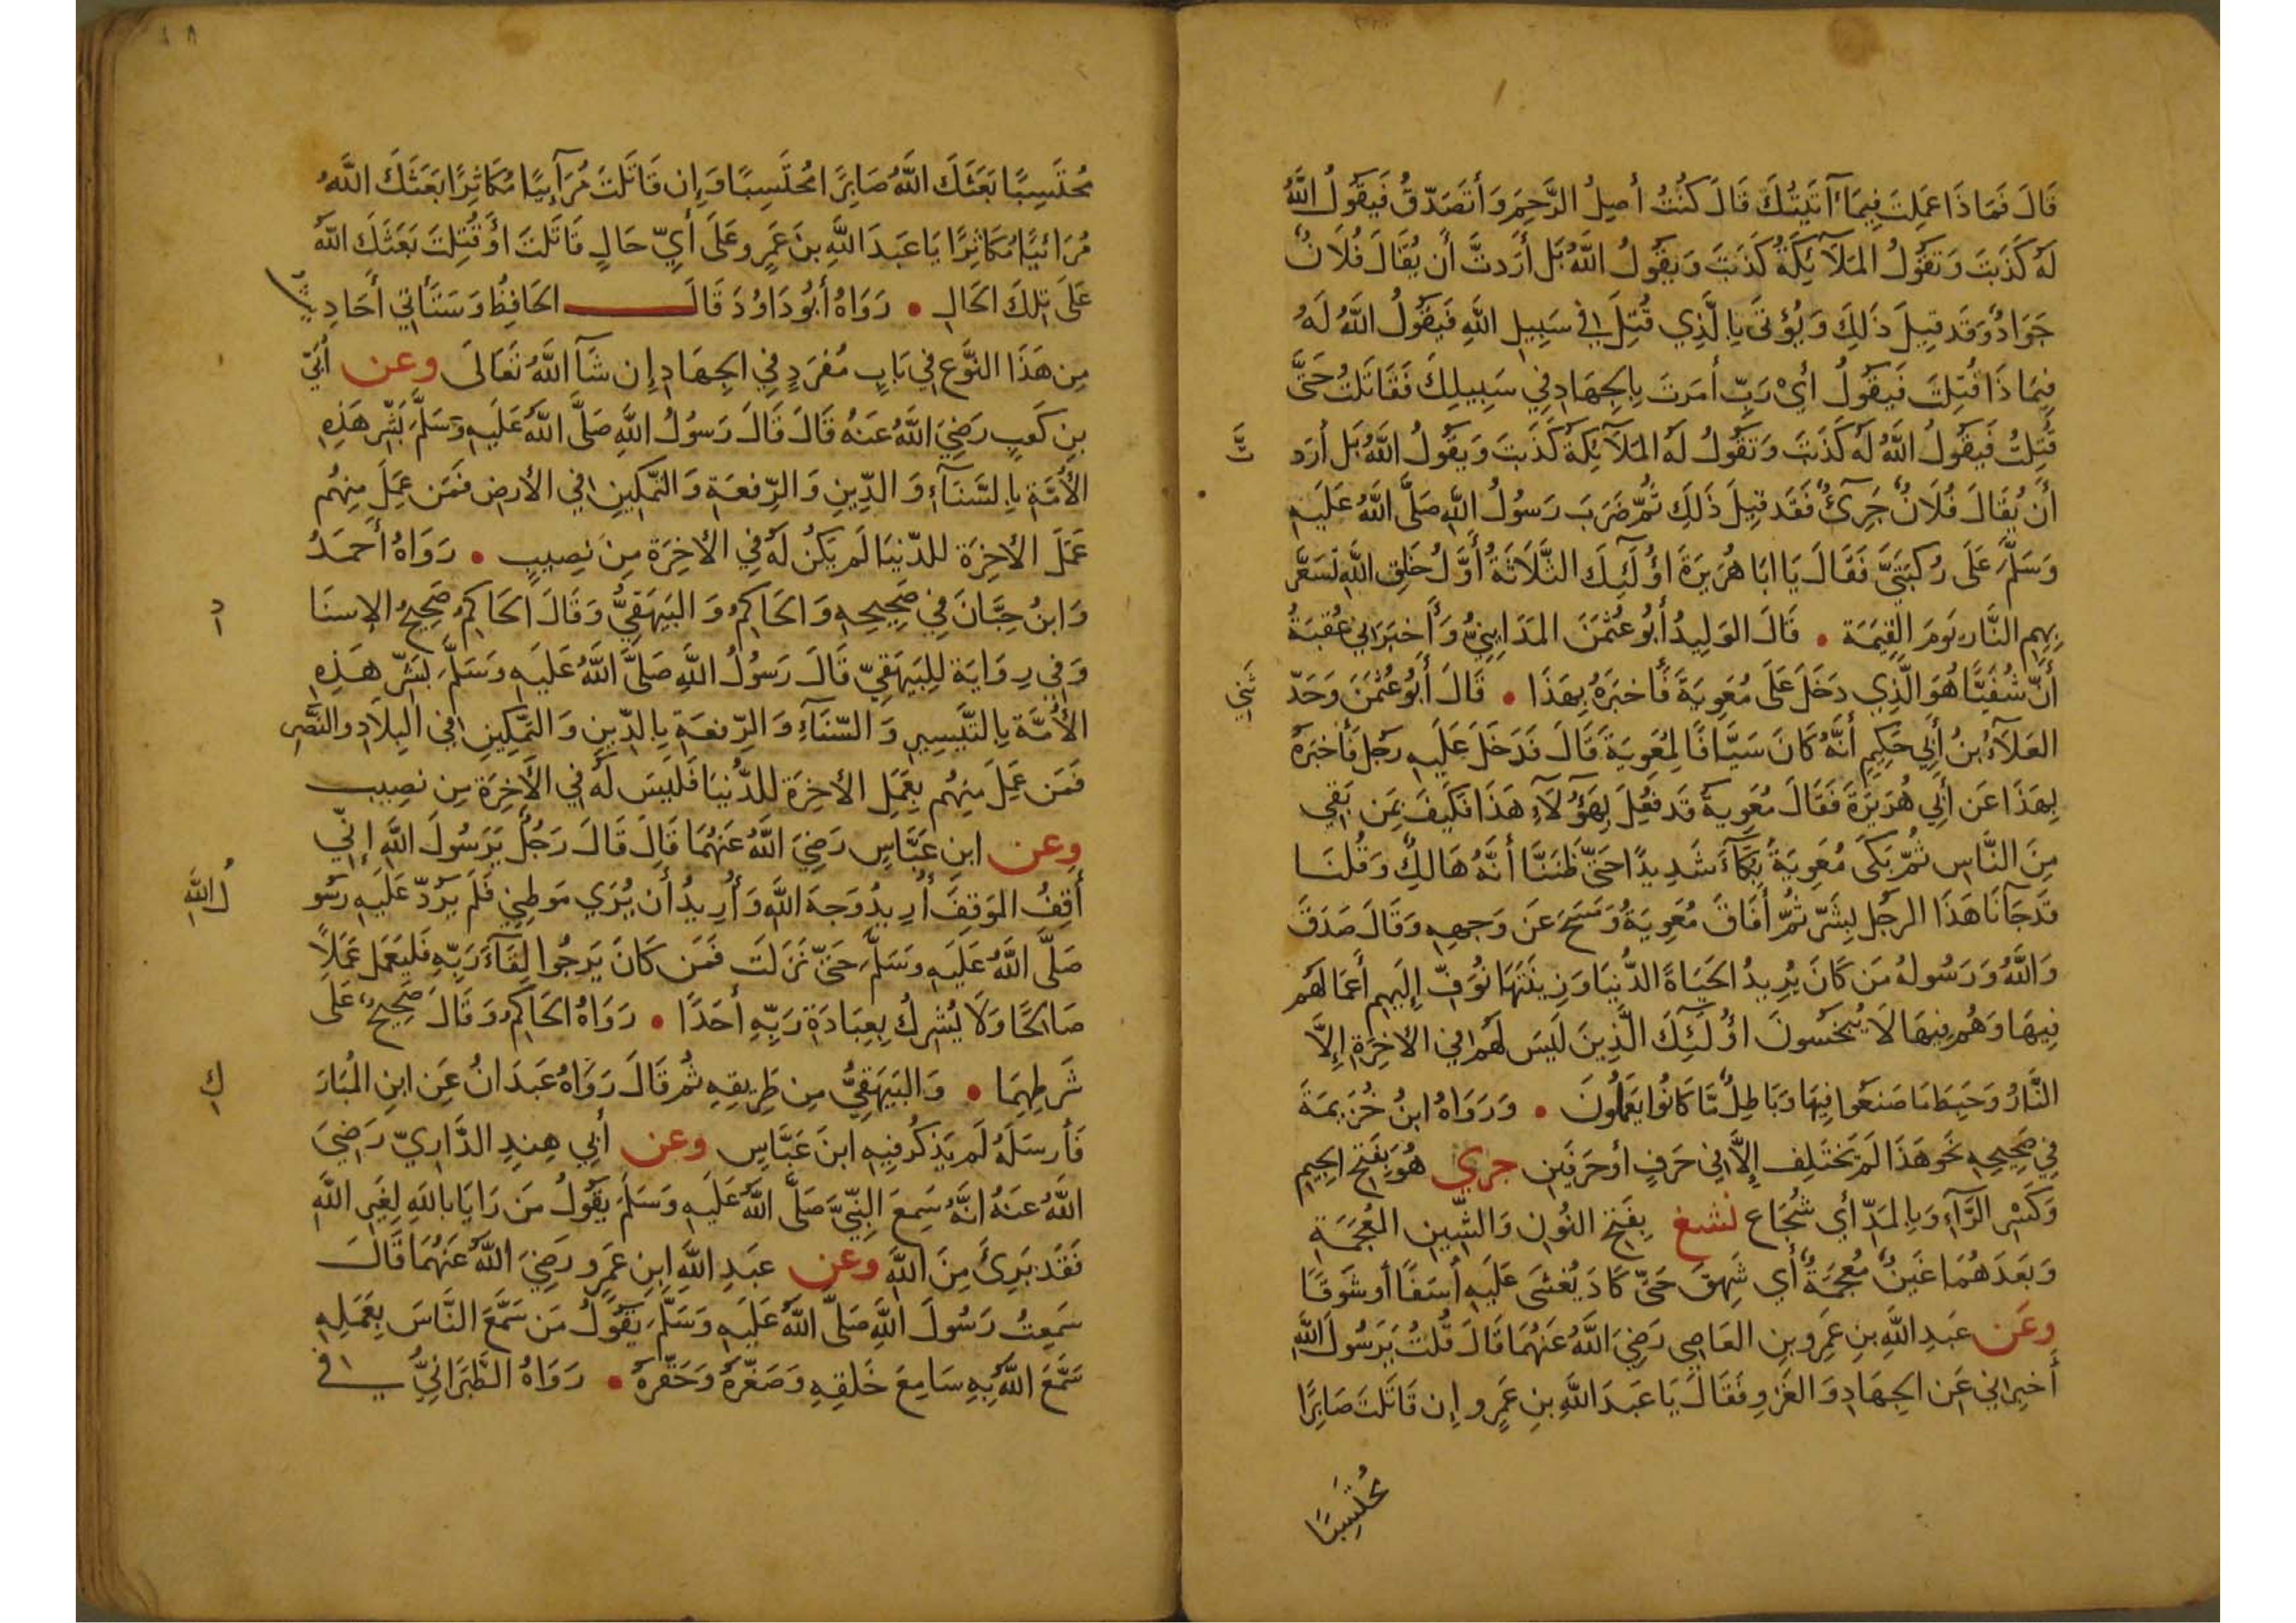 قَالَ فَمَاذَا عَمِلتَ فِيمَآ آتَيتُكَ قَالَ كُنتُ أَصِلُ الرَّحِمَ وَأَتَصَدَّقُ فَيَقُولُ اللَّهُ
لَهُ كَذَبتَ وَتَقُولُ المَلَآئِكَةُ كَذَبتَ وَيَقُولُ اللَّهُ بَل أَرَدتَّ أَن يُقَالَ فُلَانٌ
جَوَادٌ وَقَد قِيلَ ذَلِكَ وَيُؤتَى بِالَّذِي قُتِلَ فِي سَبِيلِ اللَّهِ فَيَقُولُ اللَّهُ لَهُ
فِيمَا ذَا قُتِلتَ فَيَقُولُ أَيْ رَبِّ أَمَرتَ بِالجِهَادِ فِي سَبِيلِكَ فَقَاتَلتُ حَتَّى
قُتِلتُ فَيَقُولُ اللَّهُ لَهُ كَذَبتَ وَتَقُولُ لَهُ المَلَآئِكَةُ كَذَبتَ وَيَقُولُ اللَّهُ بَل أَرَد تَّ
أَن يُقَالَ فُلَانٌ جَرِئٌ فَقَد قِيلَ ذَلِكَ ثُمَّ ضَرَبَ رَسُولُ اللَّهِ صَلَّى اللَّهُ عَلَيهِ
وَسَلَّمَ عَلَى رُكبَتَيَّ فَقَالَ يَا ابَا هُرَيرَةَ اؤُلَئِكَ الثَّلَاثَةُ أَوَّلُ خَلقِ اللَّهِ تُسَعَّرُ
بِهِم النَّارُ يَومَ القِيَمَة • قَالَ الوَلِيدُ أَبُو عُثمَنَ المَدَايِنِيُّ وَأَخبَرَنِي عُقبَةُ
أَنَّ شُفَيًّا هُوَ الَّذِي دَخَلَ عَلَى مُعَوِيَةَ فَأَخبَرَهُ بِهَذَا • قَالَ أَبُو عُثمَنَ وَحَدَّ ثَنِي
العَلَآءُ بنُ أَبِي حَكِيمٍ أَنَّهُ كَانَ سَيَّافًا لِمُعَوِيَةَ قَالَ فَدَخَلَ عَلَيهِ رَجُل فَأَخبَرَهُ
بِهَذَا عَن أَبِي هُرَيرَةَ فَقَالَ مُعَوِيَةُ قَد فُعِلَ بِهَؤُلَآءِ هَذَا فَكَيفَ بِمَن بَقِي
مِنَ النَّاسِ ثُمَّ بَكَى مُعَوِيَةُ بُكَآءً شَدِيدًا حَتَّى ظَنَنَّا أَنَّهُ هَالِكٌ وَقُلنَا
قَد جَآنَا هَذَا الرجُل بِشَرّ ثُمَّ أَفَاقَ مُعَوِيَةُ وَمَسَحَ عَن وَجهِهِ وَقَالَ صَدَقَ
وَاللَّهُ وَرَسُولهُ مَن كَانَ يُرِيدُ الحَيَاةَ الدُّنيَا وَزِينَتَهَا نُوَفِّ إِلَيهِم أَعمَالَهُم
فِيهَا وَهُم فِيهَا لَا يُبخَسُونَ اؤُلَئِكَ الَّذِينَ لَيسَ لَهُم فِي الأخِرَةِ إِلَّا
النَّارُ وَحَبِطَ مَا صَنَعُوا فِيهَا وَبَاطِلٌ مَّا كَانُوا يَعمَلُونَ • وَرَوَاهُ ابنُ خُزَيمَةَ
فِي صَحِيحِهِ نَحوَ هَذَا لَم يَختَلِف إِلَّا فِي حَرفٍ أَو حَرفَينِ جري هُوَ بِفَتحِ الجِيمِ
وَكَسْرِ الرَّآءِ وَبِالمَدِّ أَي شُجَاع نشغ بِفَتحِ النُّونِ وَالشِّينِ المُعجَمَةِ
وَبَعدَهُمَا غَينٌ مُعجَمَةٌ أَي شَهِقَ حَتَّى كَادَ يُغشَى عَلَيهِ أَسَفًا أَو شَوقًا
وعَن عَبدِ اللَّهِ بنِ عَمرِو بنِ العَاصِي رَضِيَ اللَّهُ عَنهُمَا قَالَ قُلتُ يَرَسُولَ اللَّهِ
أَخبِرنِي عَن الجِهَادِ وَالغَزوِ فَقَالَ يَا عَبدَ اللَّهِ بنِ عَمرٍو إِن قَاتَلتَ صَابِرًا
مُحتَسِبًا
مُحتَسِبًا بَعَثَكَ اللَّهُ صَابِرًا مُحتَسِبًا وَإِن قَاتَلتَ مُرَآئِيًا مُكَاثِرًا بَعَثَكَ اللَّهُ
مُرَائيًا مُكَاثِرًا يَا عَبدَ اللَّهِ بنَ عَمرٍو عَلَى أَيِّ حَالٍ قَاتَلتَ أَو قُتِلتَ بَعَثَكَ اللَّهُ
عَلَى تِلكَ الحَالِ • رَوَاهُ أَبُو دَاوُدَ قَالَ الحَافِظُ وَسَتَأتِي أَحَادِيثُ
مِن هَذَا النَّوعِ فِي بَابٍ مُفرَدٍ فِي الجِهَادِ إِن شَآ اللَّهُ تَعَالَى وعن أُبَيِّ
بنِ كَعبٍ رَضِيَ اللَّهُ عَنهُ قَالَ قَالَ رَسُولُ اللَّهِ صَلَّى اللَّهُ عَلَيهِ وَسَلَّمَ بَشِّر هَذِهِ
الأُمَّةَ بِالسَّنَآءِ وَالدِّينِ وَالرِّفعَةِ وَالتَّمكِينِ فِي الأَرضِ فَمَن عَمِلَ مِنهُم
عَمَلَ الأخِرَةِ للدّنيَا لَم يَكُن لَهُ فِي الأخِرَةِ مِن نَصِيبٍ • رَوَاهُ أَحمَدُ
وَابنُ حِبَّانَ فِي صَحِيحِهِ وَالحَاكِمُ وَالبَيهَقِيُّ وَقَالَ الحَاكِمُ صَحِيحُ الإِسنَا دِ
وَفِي رِوَايَة لِلبَيهَقِيّ قَالَ رَسُولُ اللَّهِ صَلَّى اللَّهُ عَلَيهِ وَسَلَّمَ بَشِّر هَذِهِ
الأُمَّة بِالتَّيسِيرِ وَالسّنَآءِ وَالرِّفعَةِ بِالدِّينِ وَالتَّمكِينِ فِي البِلَادِ وَالنَّصرِ
فَمَن عَمِلَ مِنهُم بِعَمَلِ الأخِرَة للدُّنيَا فَلَيسَ لَهُ فِي الأخِرَةِ مِن نصِيب
وعن ابنِ عَبَّاسٍ رَضِيَ اللَّهُ عَنهُمَا قَالَ قَالَ رَجُلٌ يَرَسُولَ اللَّهِ إِنِّي
أَقِفُ المَوقِفَ أُرِيدُ وَجهَ اللَّهِ وَأُرِيدُ أَن يُرَي مَوطِنِي فَلَم يَرُدّ عَلَيهِ رَسُو لُ اللَّهِ
صَلَّى اللَّهُ عَلَيهِ وَسَلَّمَ حَتَّى نَزَلَت فَمَن كَانَ يَرجُوا لِقَآءَ رَبِّهِ فَليَعمَل عَمَلًا
صَالحًا وَلَا يُشرِك بِعِبَادَةِ رَبِّهِ أَحَدًا • رَوَاهُ الحَاكِمُ وَقَالَ صَحِيحٌ عَلَى
شَرطِهِمَا • وَالبَيهَقِيُّ مِن طَرِيقِهِ ثُم قَالَ رَوَاهُ عَبدَانُ عَنِ ابنِ المُبَارَ كِ
فَأَرسَلَهُ لَم يَذكُر فِيهِ ابنَ عَبَّاسٍ وعن أَبِي هِندِ الدَّارِيّ رَضِيَ
اللَّهُ عَنهُ انَّهُ سَمِعَ النَّبِيَّ صَلَّى اللَّهُ عَلَيهِ وَسَلَّمَ يَقُولُ مَن رَايَا بِاللَّهِ لِغَيرِ اللَّهِ
فَقَد بَرِئَ مِنَ اللَّهِ وعن عَبدِ اللَّهِ ابنِ عَمرٍو رَضِيَ اللَّهُ عَنهُمَا قَالَ
سَمِعتُ رَسُولَ اللَّهِ صَلَّى اللَّهُ عَلَيهِ وَسَلَّمَ يَقُولُ مَن سَمَّعَ النَّاسَ بِعَمَلِهِ
سَمَّعَ اللَّهُ بِهِ سَامِعَ خَلقِهِ وَصَغَّرَهُ وَحَقَّرَهُ • رَوَاهُ الطَّبَرَانِيُّ فِي